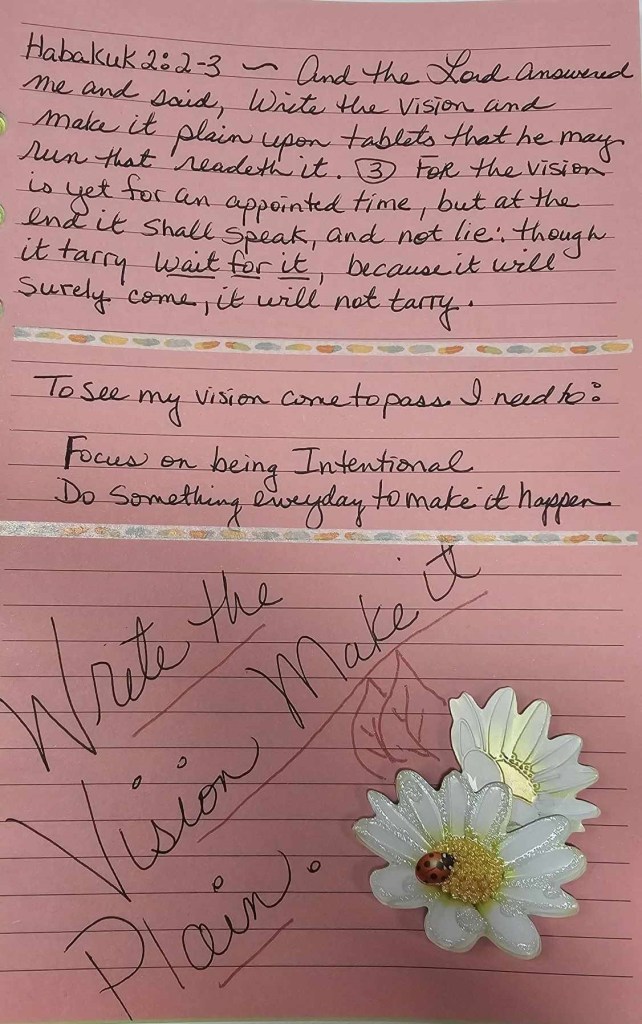 Habakuk 2:2-3 ~ And the Lord answered
me and said, Write the Vision and
make it plain upon tablets that he may
run that readeth it. ③ For the vision
is yet for an appointed time, but at the
end it shall speak, and not lie: though
it tarry wait for it, because it will
surely come, it will not tarry.
To see my vision come to pass I need to:
Focus on being Intentional
Do Something everyday to make it happen
Write the
Vision Make it
Plain.